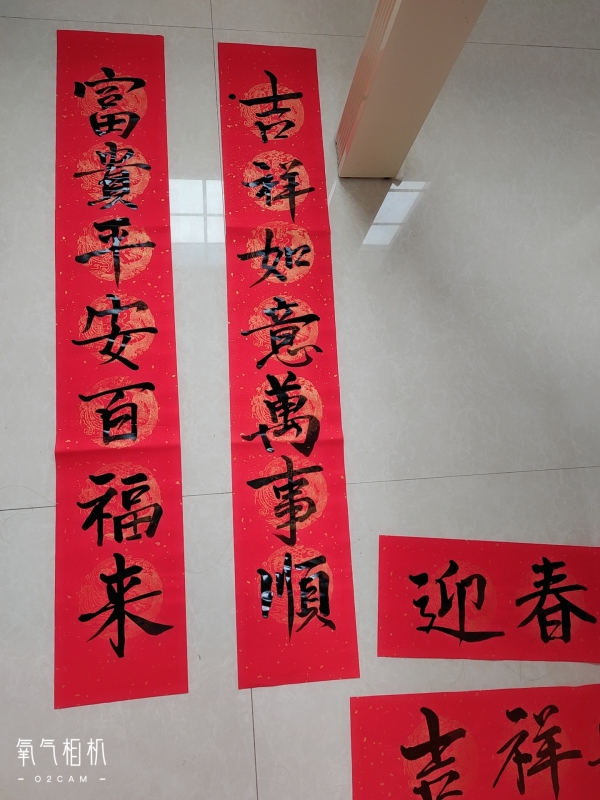 吉祥如意萬事順
富貴平安百福来
迎春
吉祥
氧气相机
O2CAM